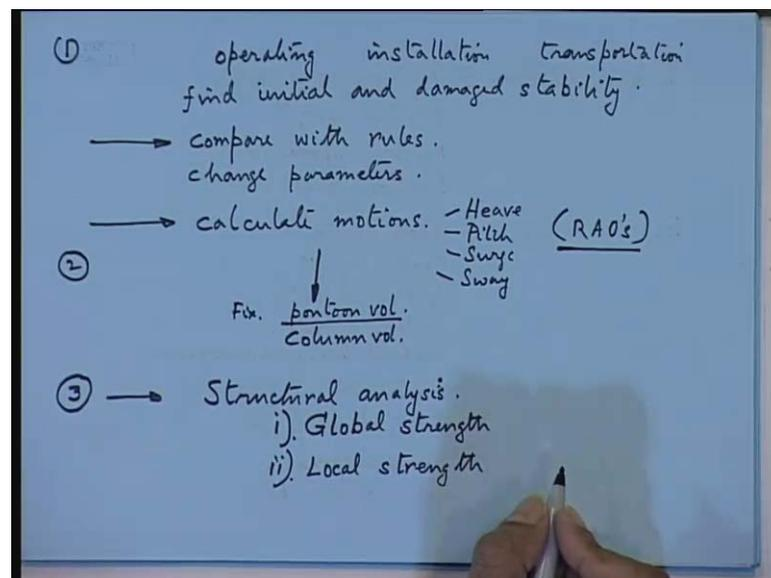 ① operating installation transportation
find initial and damaged stability.
→ compare with rules.
change parameters.
→ calculate motions. - Heave
- Pitch
- Surge
- Sway
(RAO's)
②
Fix. pontoon vol.
Column vol.
③ → Structural analysis.
i). Global strength
ii). Local strength